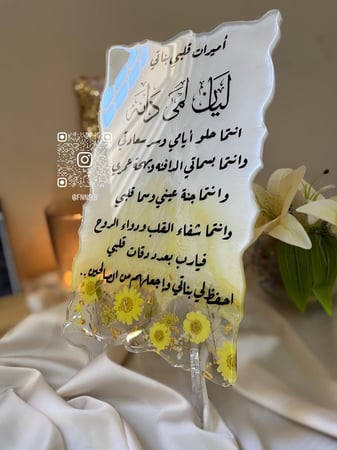 أميرات قلبي بناتي
ليان لمى دانة
انتما حلو أيامي وسر سعادتي
وانتما بسماتي الدافئة وبهجة عمري
وانتما جنة عيني وسما قلبي
وانتما شفاء القلب ودواء الروح
فيارب بعدد دقات قلبي
احفظ لي بناتي واجعلهم من الصالحين..